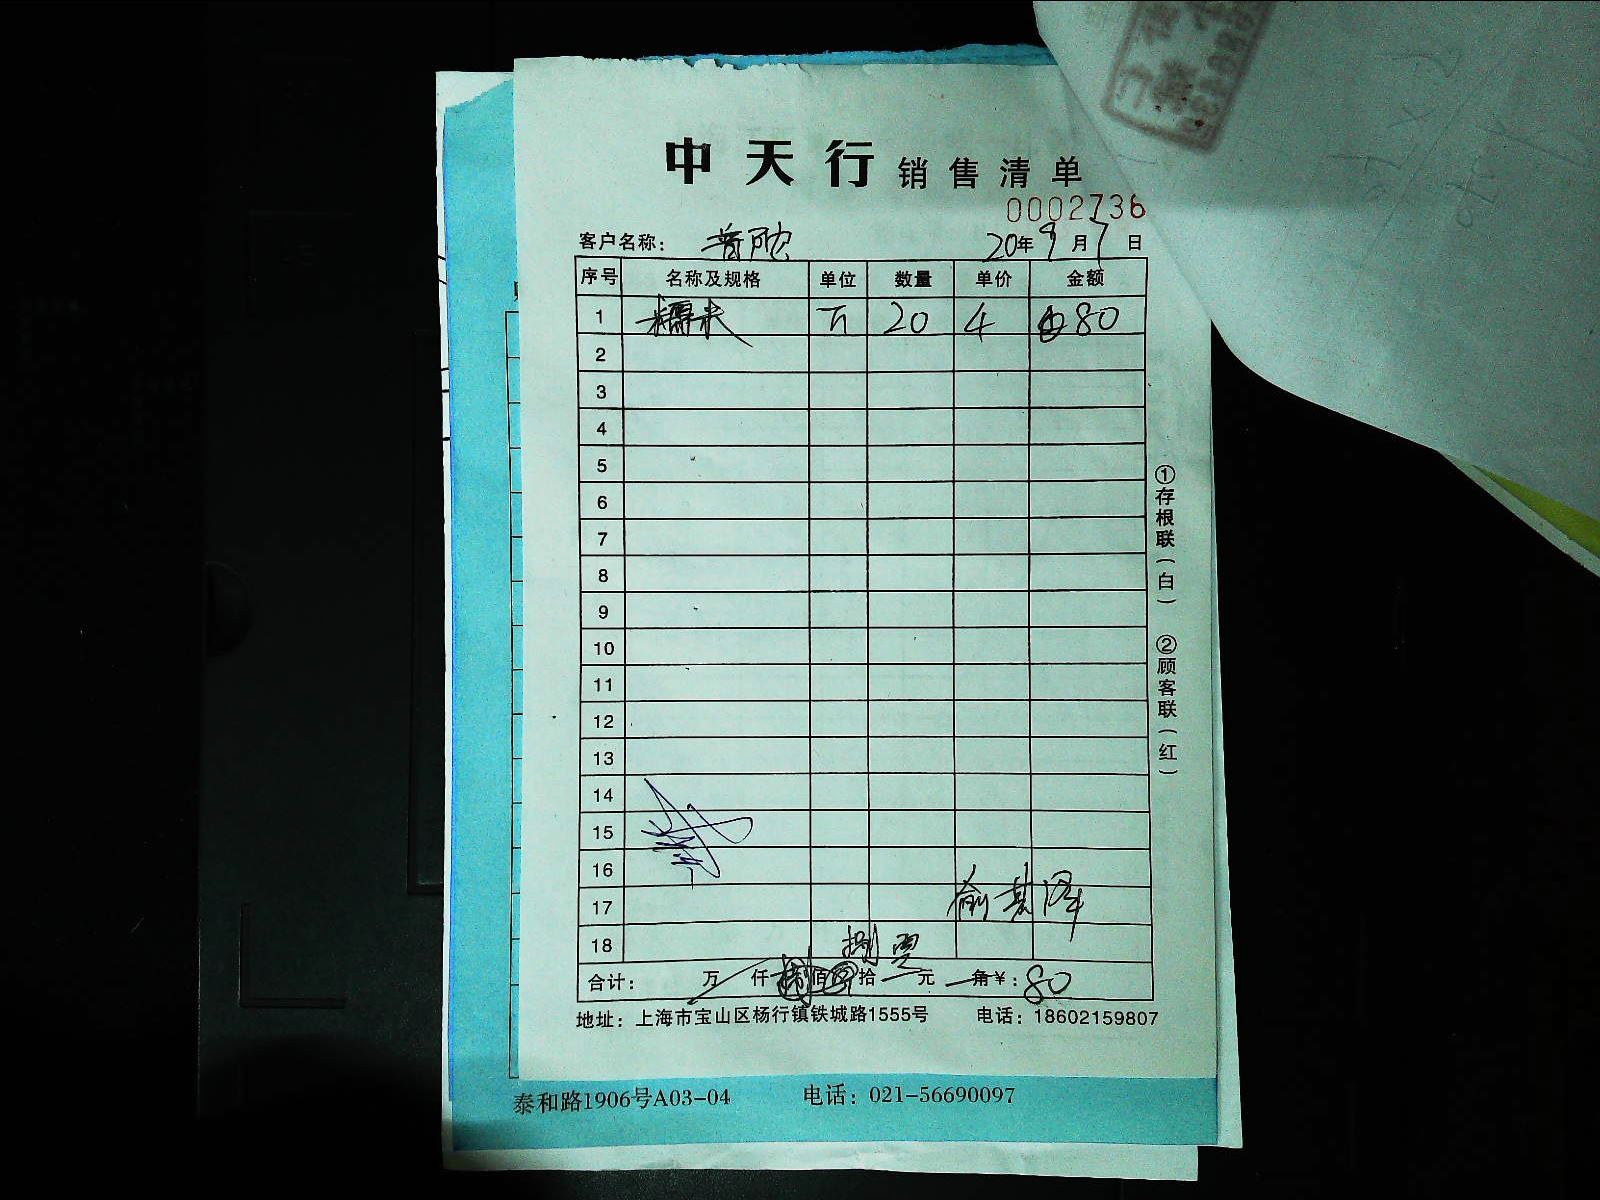 中天行 销售清单
0002736
客户名称: 普陀 20年9月7日
序号 名称及规格 单位 数量 单价 金额
1 糯米 斤 20 4 80
2
3
4
5
6
7
8
9
10
11
12
13
14
15
16
17 俞其泽
18
捌 零
合计: 万 仟 佰 拾 元 角 ¥: 80
地址: 上海市宝山区杨行镇铁城路1555号 电话: 18602159807
①存根联(白) ②顾客联(红)
泰和路1906号A03-04 电话: 021-56690097